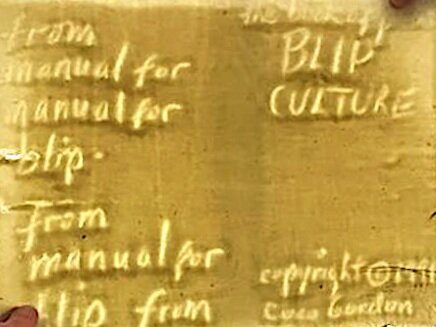 from
manual for
manual for
blip.
from
manual for
blip from
BLIP
CULTURE
copyright ©
Coco Gordon